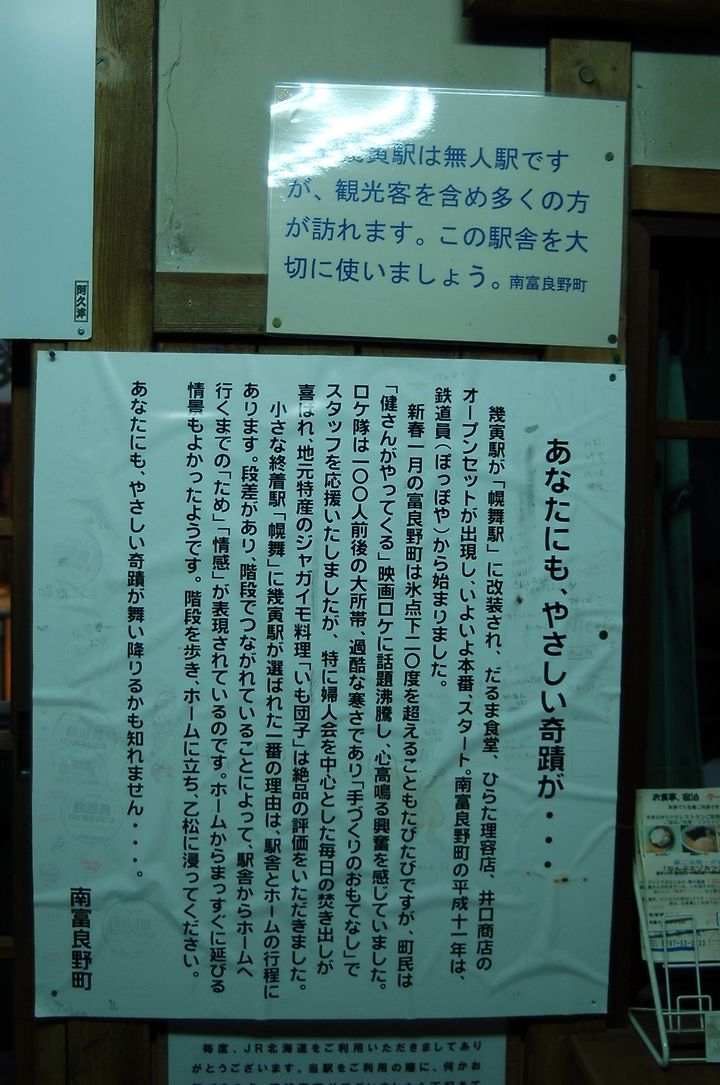 寅駅は無人駅です
が、観光客を含め多くの方
が訪れます。この駅舎を大
切に使いましょう。南富良野町
阿久津
あなたにも、やさしい奇蹟が・・・
幾寅駅が「幌舞駅」に改装され、だるま食堂、ひらた理容店、井口商店の
オープンセットが出現し、いよいよ本番、スタート。南富良野町の平成十一年は、
鉄道員（ぽっぽや）から始まりました。
新春一月の富良野町は氷点下二〇度を超えることもたびたびですが、町民は
「健さんがやってくる」映画ロケに話題沸騰し、心高鳴る興奮を感じていました。
ロケ隊は一〇〇人前後の大所帯、過酷な寒さであり「手づくりのおもてなし」で
スタッフを応援いたしましたが、特に婦人会を中心とした毎日の焚き出しが
喜ばれ、地元特産のジャガイモ料理「いも団子」は絶品の評価をいただきました。
小さな終着駅「幌舞」に幾寅駅が選ばれた一番の理由は、駅舎とホームの行程に
あります。段差があり、階段でつながれていることによって、駅舎からホームへ
行くまでの「ため」「情感」が表現されているのです。ホームからまっすぐに延びる
情景もよかったようです。階段を歩き、ホームに立ち、乙松に浸ってください。
あなたにも、やさしい奇蹟が舞い降りるかも知れません・・・・。
南富良野町
お食事、宿泊
毎度、JR北海道をご利用いただきましてあり
がとうございます。当駅をご利用の際に、何かお